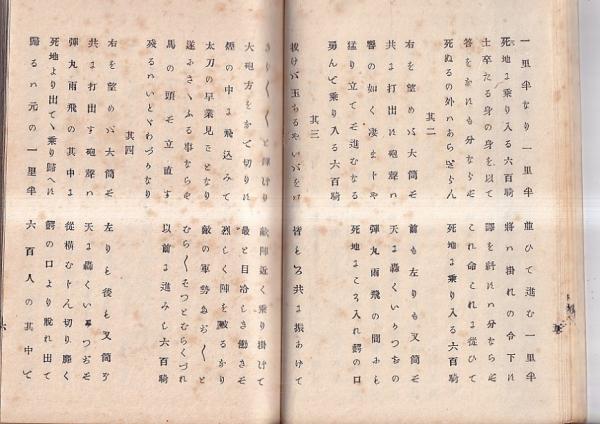 一里半なり一里半 並びて進む一里半
死地に乗り入る六百騎 將は掛れの令下す
士卒たる身の身を以て 譯を糺すは分ならず
答をなすも分ならず これ命これに從ひて
死ぬるの外はあらざらん 死地に乗り入る六百騎
其二
右を望めば大筒ぞ 前も左りも又筒ぞ
共に打出す砲聲は 天に轟くいかづちの
響の如く凄まじや 彈丸雨飛の間にも
猛り立てぞ進むなる 死地にこそ入れ鰐の口
勇んで乗り入る六百騎
其三
抜けば玉ちるやいばをば 皆もろ共に振あげて
と揮けり 敵陣近く乗り掛けて
大砲方を切りに 最と目冷しき働きぞ
煙の中に飛込みて 烈しく陣を敗るかり
太刀の早業見ごとなり 敵の軍勢と
遂にさゝふる事ならず むらくづれ
馬の頭を立直す 以前に進みし六百騎
残るはいとゞわづかなり
其四
右を望めば大筒ぞ 左りも後も又筒ぞ
共に打出す砲聲は 天に轟くいかづちぞ
彈丸雨飛の其中に 從横むじん切り靡く
死地より出でゝ乗り歸へす 鰐の口より脱れ出て
歸るは元の一里半 六百人の其中で